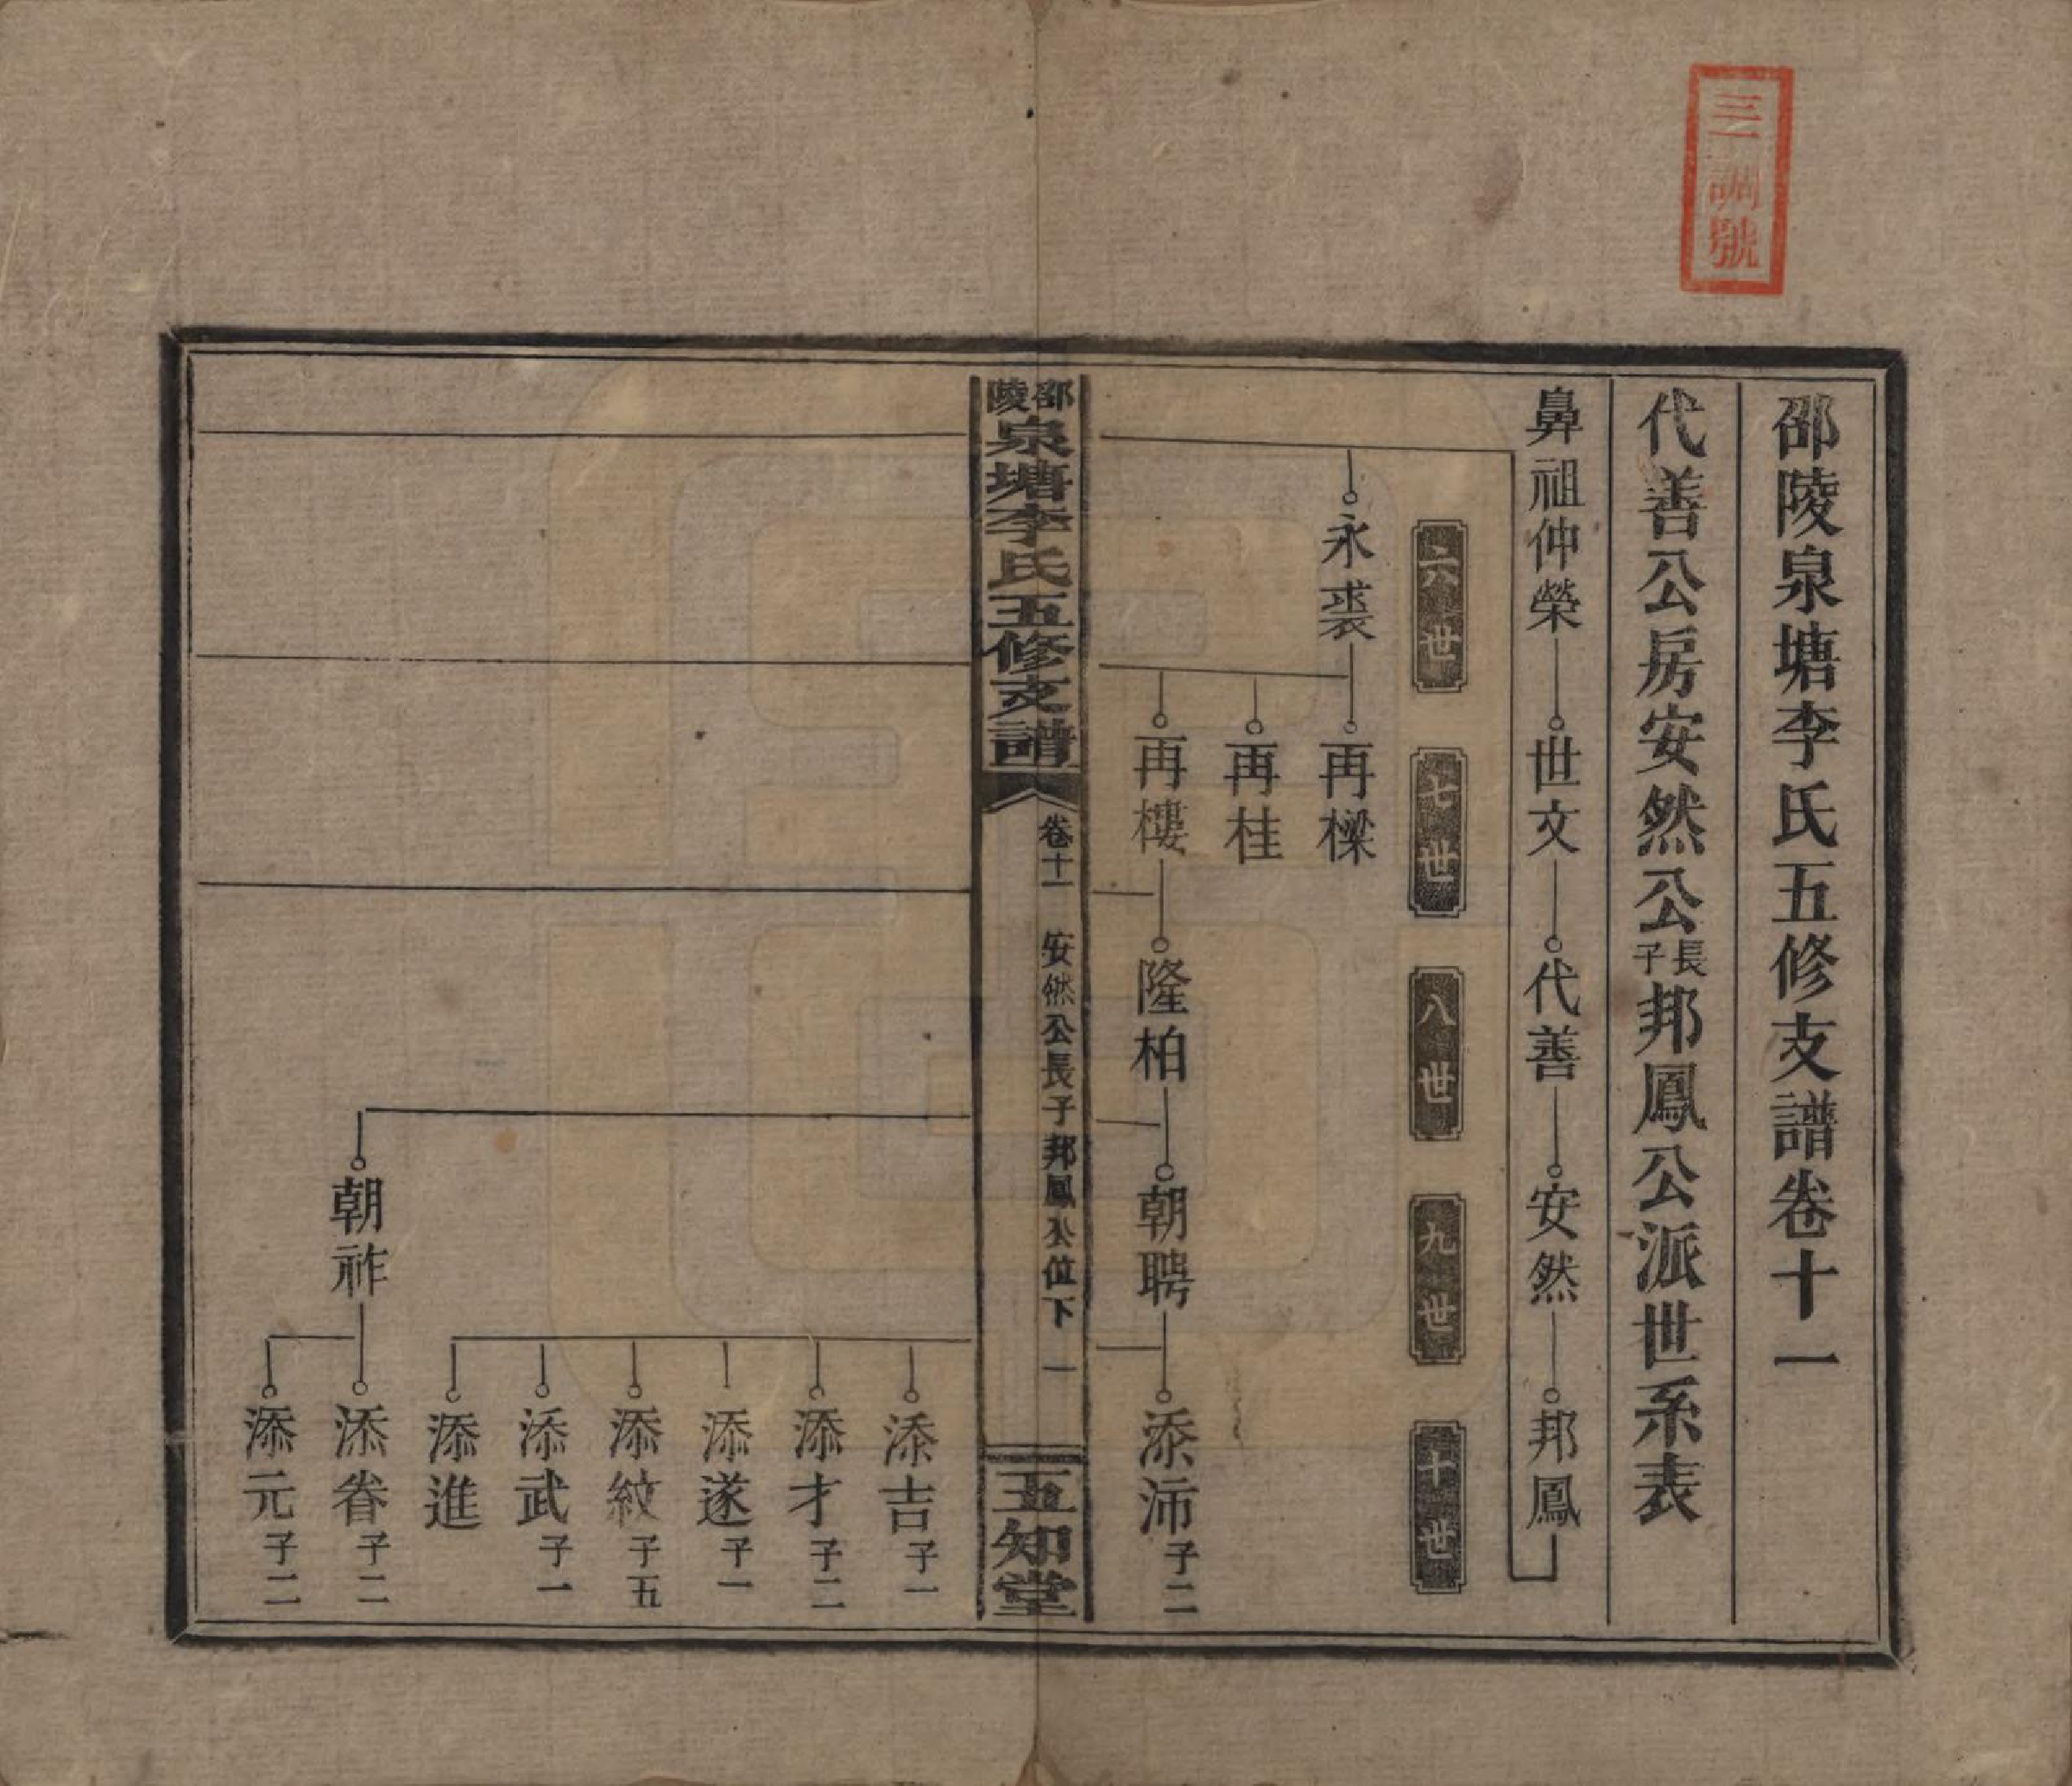 三一調號
邵陵泉塘李氏五修支譜卷十一
代善公房安然公長子邦鳳公派世系表
鼻祖仲榮 世文 代善 安然 邦鳳
六世 七世 八世 九世 十世
永裘 再樑
再桂
再樓 隆柏 朝聘 添沛 子二
邵陵泉塘李氏五修支譜 卷十一 安然公長子邦鳳公位下 一 五知堂
添吉 子一
添才 子二
添遂 子一
添紋 子五
添武 子一
添進
朝祚 添眷 子二
添元 子二